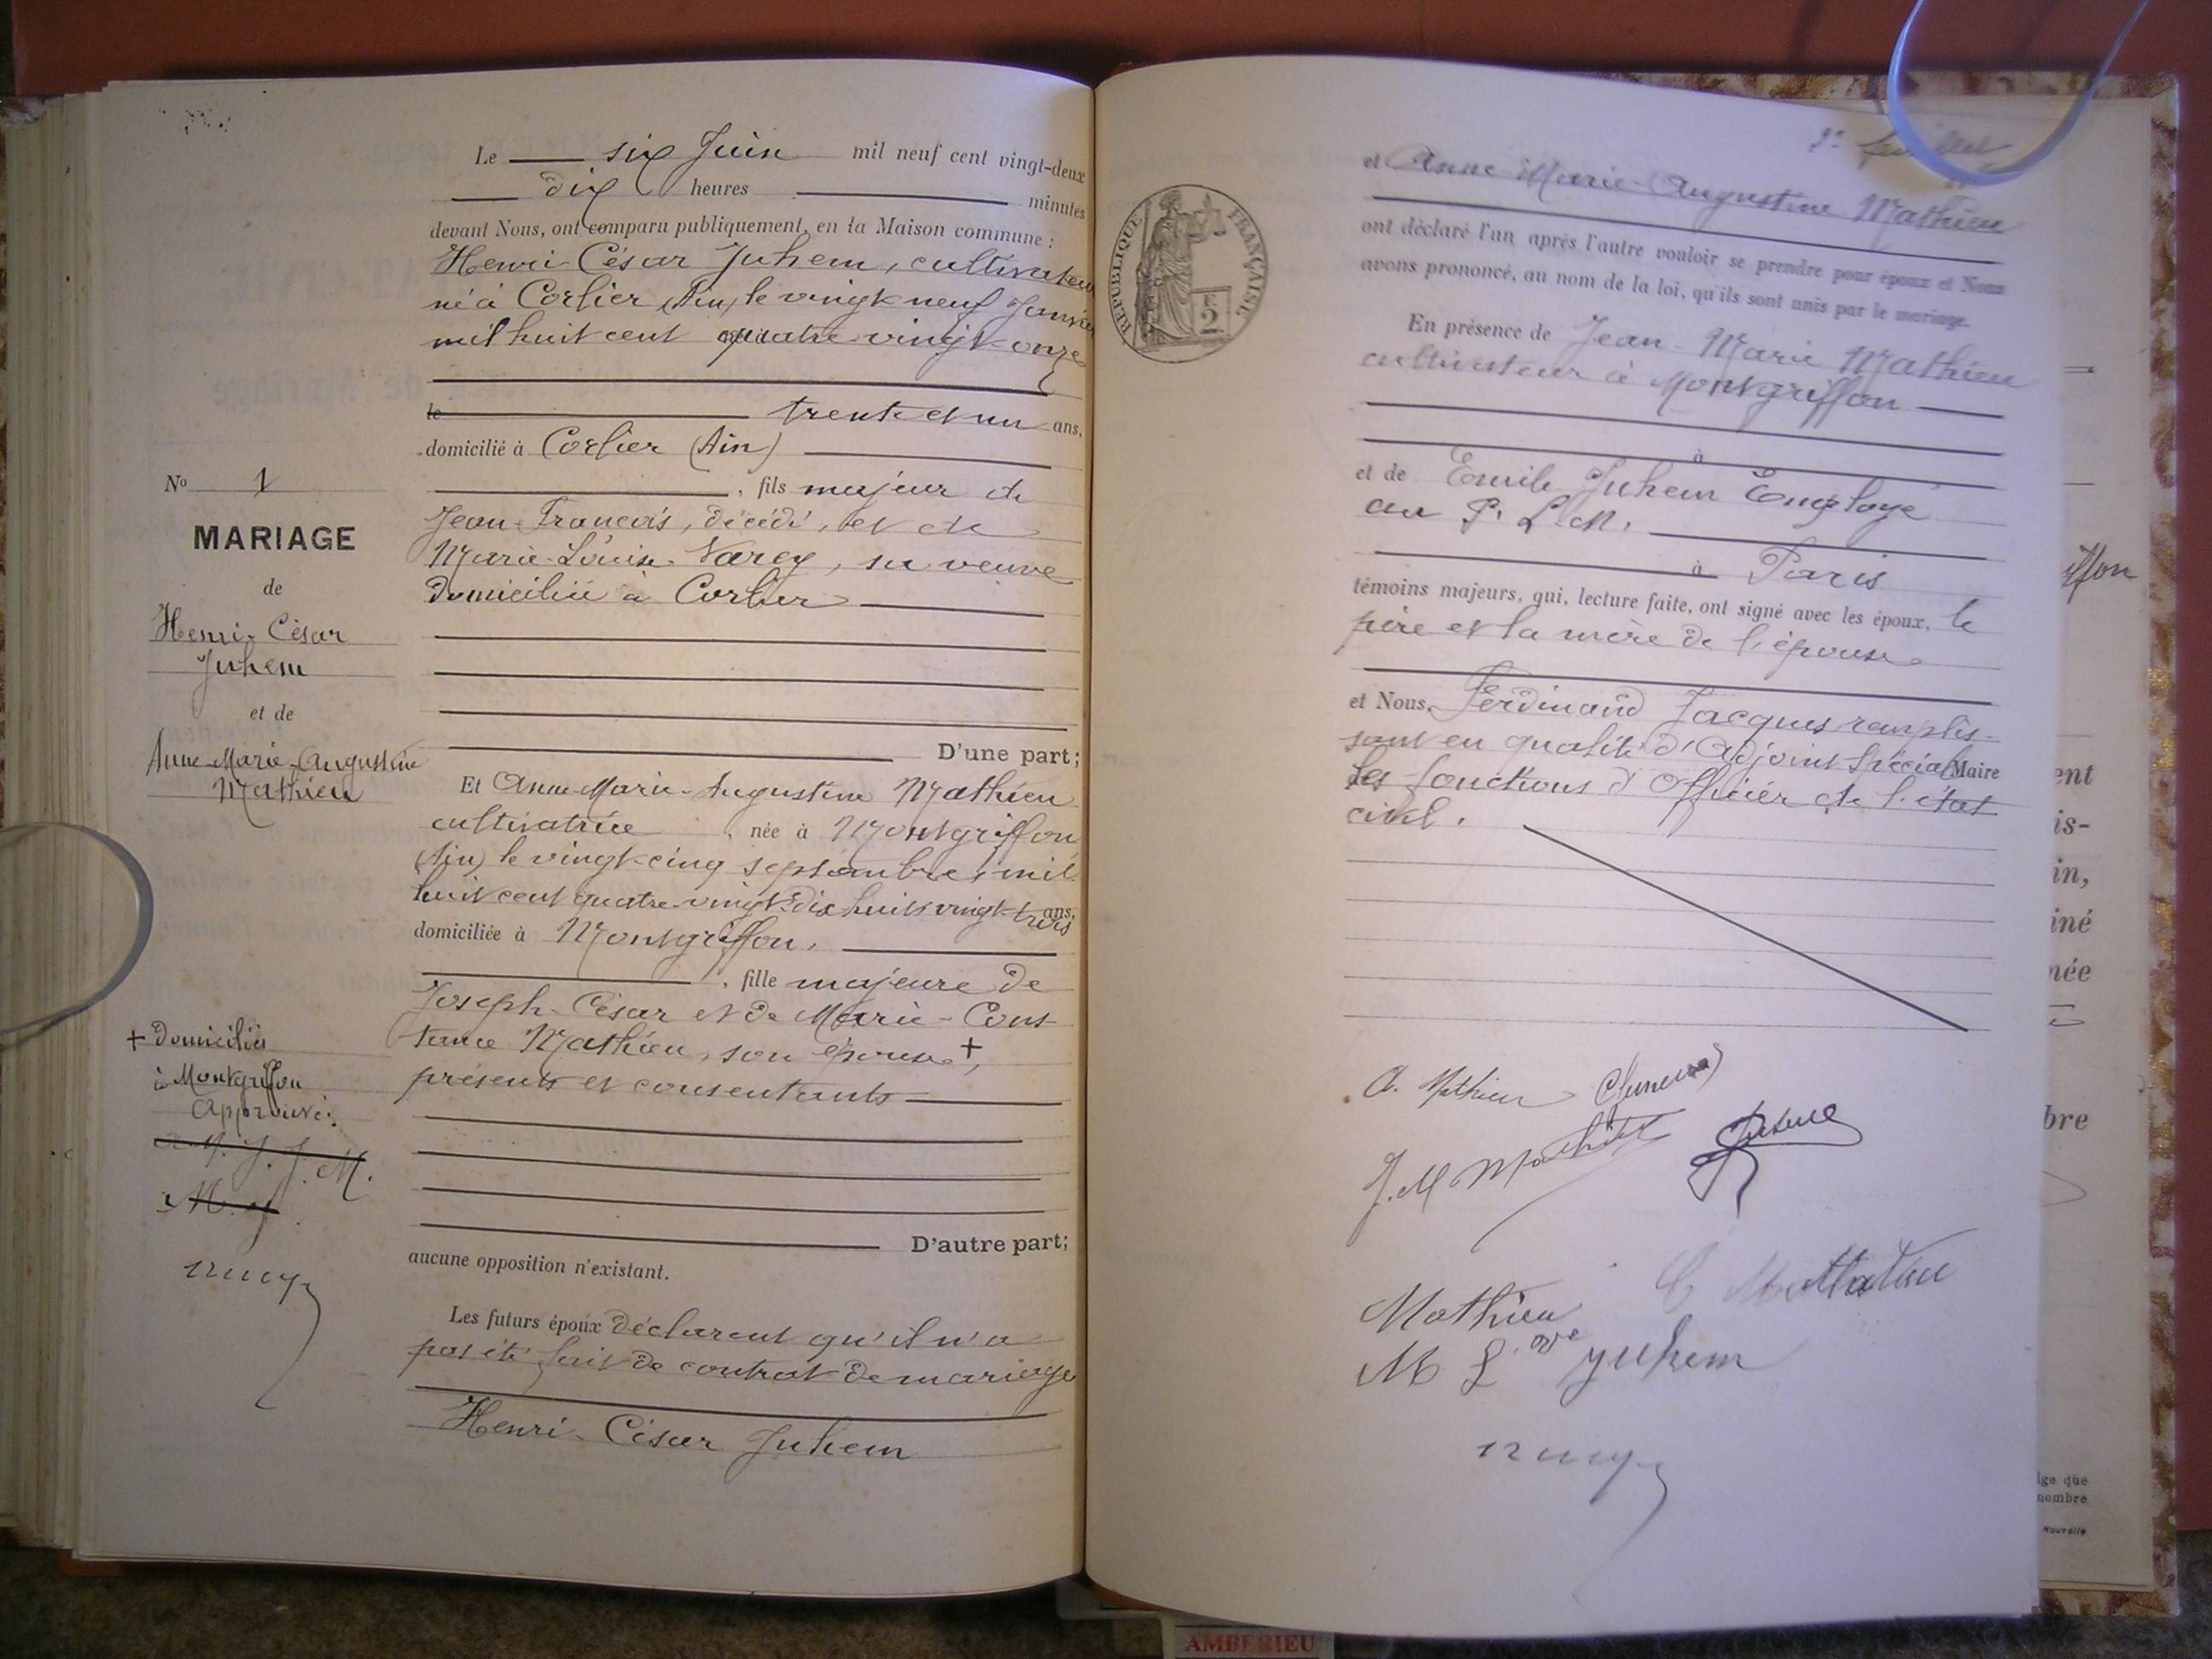 Le six Juin mil neuf cent vingt-deux
dix heures minutes
devant Nous, ont comparu publiquement, en la Maison commune :
Henri César Juhem, cultivateur
né à Corlier (Ain) le vingt neuf Janvier
mil huit cent quatre-vingt onze
le trente et un ans,
domicilié à Corlier (Ain)
, fils majeur de
Jean-François, décédé, et de
Marie-Louise Varey, sa veuve
domiciliée à Corlier
D'une part;
Et Anne-Marie-Augustine Mathieu
cultivatrice, née à Montgriffon
(Ain) le vingt-cinq septembre mil
huit cent quatre-vingt-dix huit vingt-trois ans,
domiciliée à Montgriffon,
, fille majeure de
Joseph-César et de Marie-Cons-
tance Mathieu, son épouse +,
présents et consentants
D'autre part;
aucune opposition n'existant.
Les futurs époux déclarent qu'il n'a
pas été fait de contrat de mariage
Henri-César Juhem
No 1
MARIAGE
de
Henri-César
Juhem
et de
Anne-Marie-Augustine
Mathieu
+ Domiciliés
à Montgriffon
Approuvé:
J. J. M.
et Anne-Marie-Augustine Mathieu
ont déclaré l'un après l'autre vouloir se prendre pour époux et Nous
avons prononcé, au nom de la loi, qu'ils sont unis par le mariage.
En présence de Jean-Marie Mathieu
cultivateur à Montgriffon
à
et de Emile Juhem Employé
au P. L. M.
à Paris
témoins majeurs, qui, lecture faite, ont signé avec les époux, le
père et la mère de l'épouse
et Nous, Ferdinand Jacques remplis-
sant en qualité d'Adjoint Spécial Maire
les fonctions d'Officier de l'état
civil.
A. Mathieu
J. M Mathieu
Juhem
Mathieu C Mathieu
M L. Vve Juhem
RÉPUBLIQUE FRANÇAISE
2
iffon
ent
is-
in,
iné
née
bre
ige que
nombre
Nouvelle
AMBERIEU